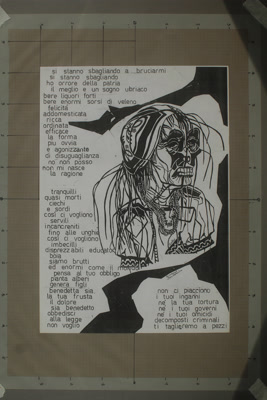 si stanno sbagliando a ...bruciarmi
si stanno sbagliando
ho orrore della patria
il meglio e un sogno ubriaco
bere liquori forti
bere enormi sorsi di veleno
felicità
addomesticata
ricca
ordinata
efficace
la forma
piu ovvia
e agonizzante
di disuguaglianza
no non posso
non mi riesce
la ragione
tranquilli
quasi morti
ciechi
e sordi
così ci vogliono
servili
incancreniti
fino alle unghie
così ci vogliono
imbecilli
disprezzabili educatori
boia
siamo brutti
ed enormi come il
pensa al tuo obbligo
pianta alberi
genera figli
benedetta sia
la tua frusta
il dolore
sia benedetto
obbedisci
alla legge
non voglio
non ci piacciono
i tuoi inganni
né la tua tortura
né i tuoi governi
né i tuoi omicidi
decomposti criminali
ti taglieremo a pezzi